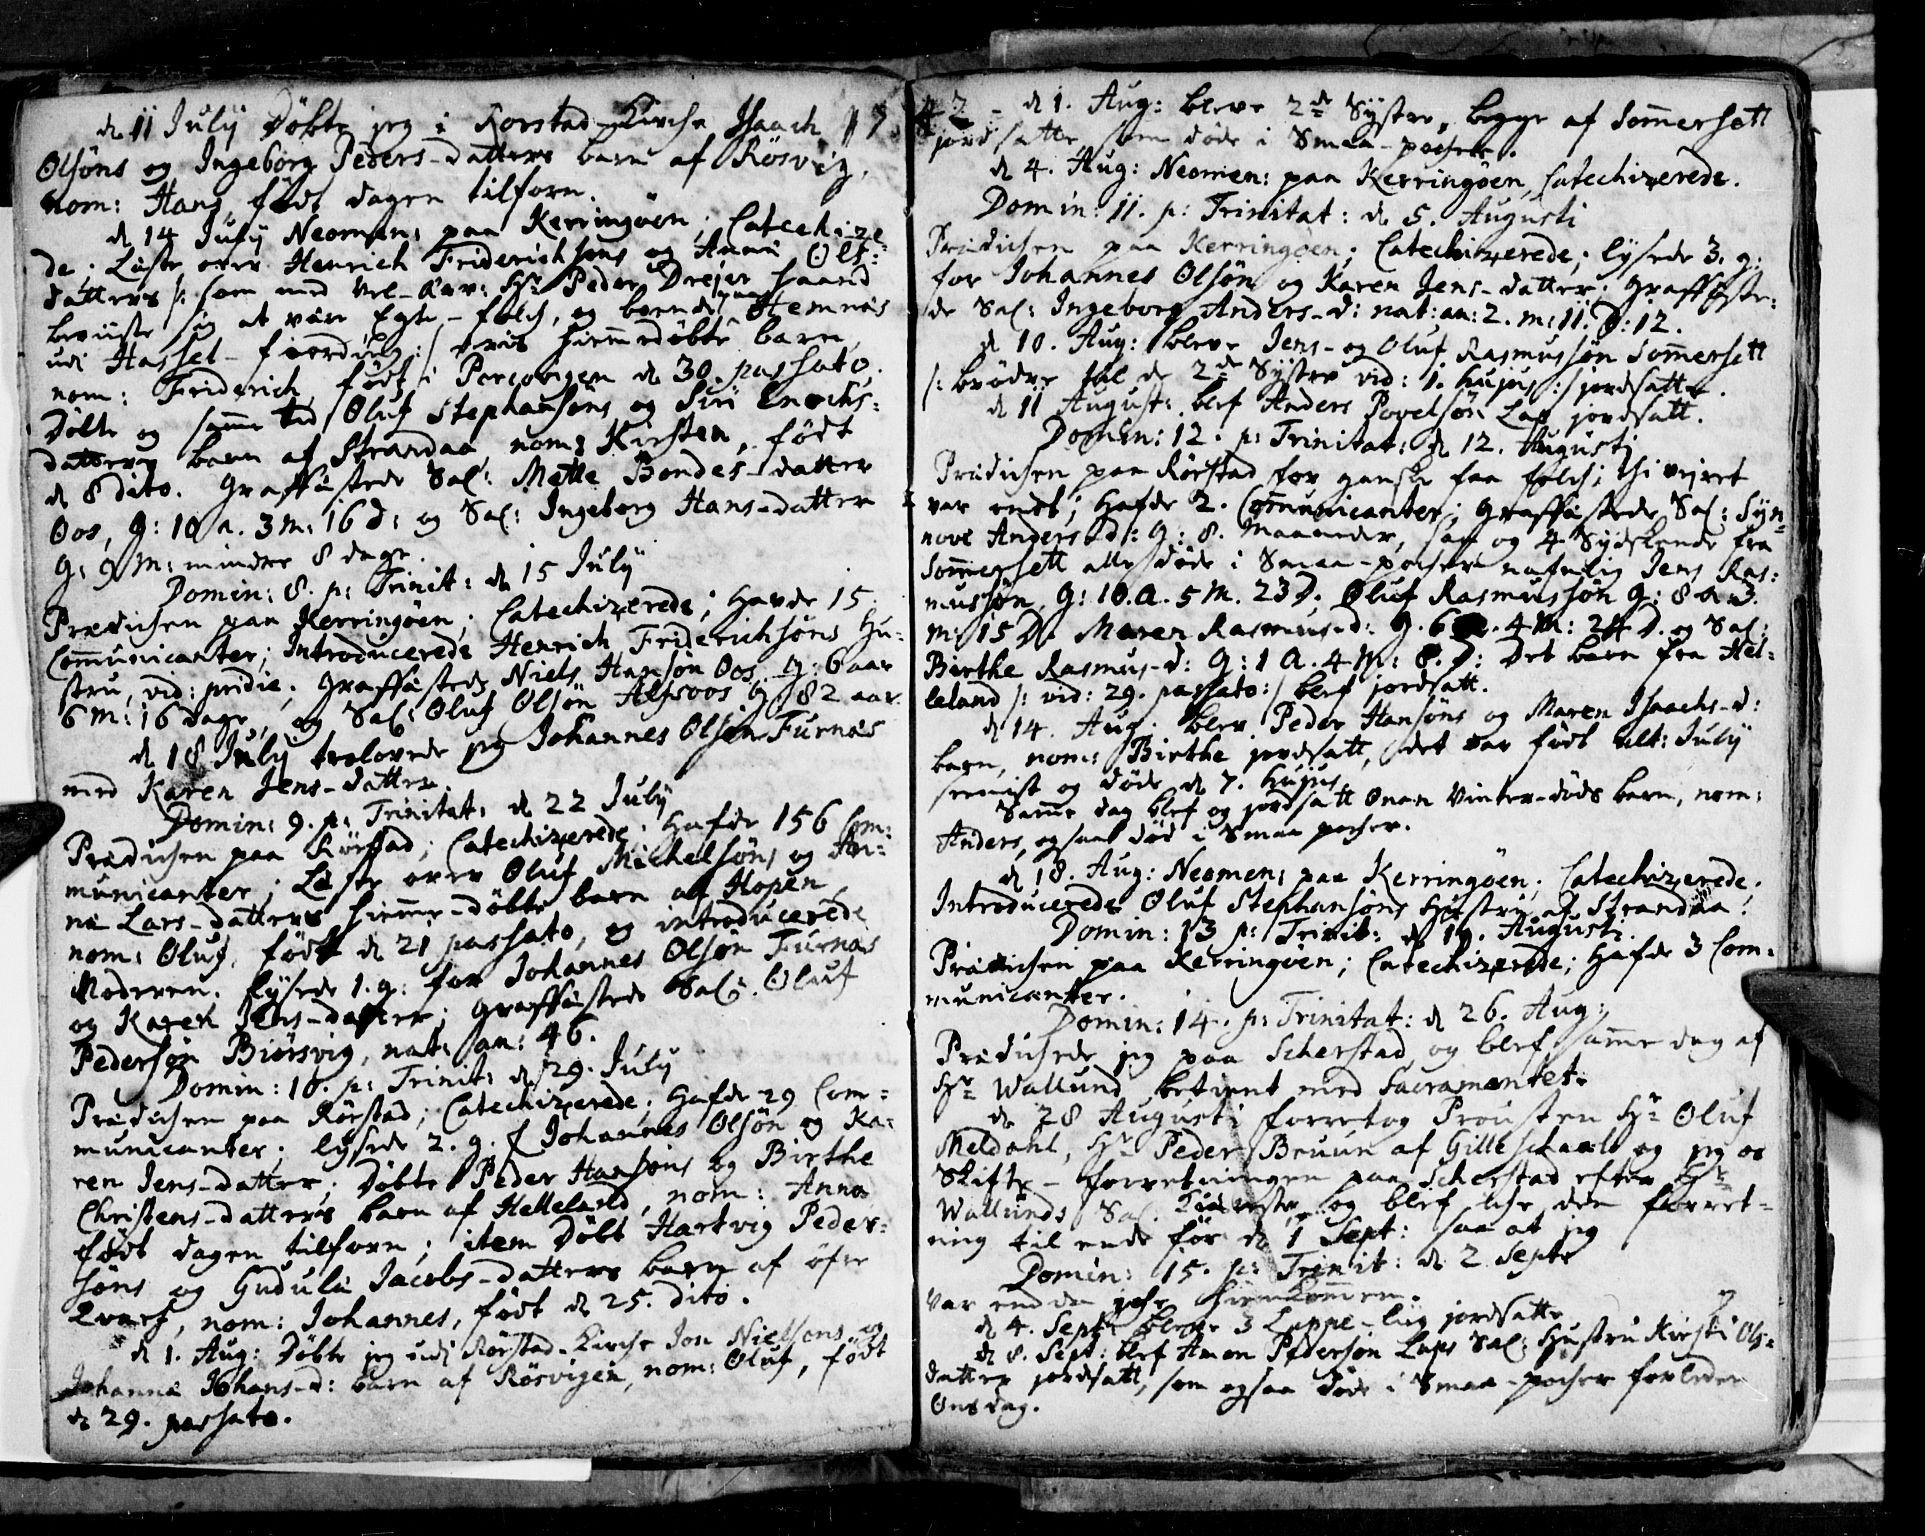 de 11 July Döbte jeg i Rorstad-Kirche Isaach
Olsöns og Ingeborg Peders-datters barn af Rösvig,
nom: Hans, födt dagen tilforn.
de 14 July Neomen: paa Kerringöen; Catechize=
de; Læste over Henrich Friderichsøns og Anna Ols=
datters /: som med Vel-Ærv: Hr Peder Drejer haand
beviiste sig at være Egte-folch, og boende paa Hemnæs
udi Hassel-fierding :/ hiemmedöbte barn,
nom: Friderich, födt i de 30. passato.
Döbte og samme tid Oluf Stephansöns og Siri Enochs=
datters barn af Strandaa, nom: Kirsten, födt
de 8 dito. Graffæstede Sal: Mette Bondes-datter
Oos, G: 10 a. 3 m: 16 d: og Sal: Ingeborg Hans-datter
G: 9 M: mindre 8 dage.
Domin: 8. p: Trinit: de 15 July
Prædichen paa Kerringöen; Catechizerede; Havde 15
Communicanter; Introducerede Henrich Friderichsöns Hu=
stru, vid: pridie; Graffæstede Niels Hansön Oos, G: 6 aar
6 m: 16 dage, og Sal: Oluf Olsön Alsvoos G 82 aar.
de 18 July trolovede jeg Johannes Olsön Furnæs
med Karen Jens-datter.
Domin: 9. p: Trinitat: de 22 July
Prædichen paa Rörstad; Catechizerede; Hafde 156 Com=
municanter; Læste over Oluf Michelsöns og An=
na Lars-datters hiemme-döbte barn af Hopen
nom: Oluf, födt de 21 passato, og introducerede
Moderen. lysede 1. g: for Johannes Olsön Furnæs
og Karen Jens-datter; graffæstede Sal: Oluf
Pedersön Biörsvig, nat: an: 46.
Domin: 10. p: Trinit: de 29. July
Prædichen paa Rörstad; Catechizerede; Hafde 29 Com=
municanter; lysede 2. g. f Johannes Olsön og Ka=
ren Jens-datter; Döbte Peder Hansöns og Birthe
Christens-datters barn af Helleland, nom: Anna
födt dagen tilforn; item Döbt Hartvig Peder=
söns og Gudula Jacobs-datters barn af öfre
Qvarf, nom: Johannes, födt de 25. dito.
de 1. Aug: Döbte jeg udi Rörstad-Kirche Jon Nielsöns og
Johanna Johans-d: barn af Rösvigen, nom: Oluf, födt
de 29. passato.
de 1. Aug: bleve 2de Systre, begge af Sommersett
jordsatte som döde i Smaa-pocher.
de 4. Aug: Neomen: paa Kerringöen, Catechizerede.
Domin: 11. p: Trinitat: de 5. Augusti
Prædichen paa Kerringöen; Catechizerede; lysede 3. g:
for Johannes Olsön og Karen Jens-datter; Graffæste=
de Sal: Ingeborg Anders-d: nat: an: 2. m: 11. D: 12.
de 10. Aug: bleve Jens- og Oluf Rasmussön Sommersett
/: brödre til de 2de Systre vid: 1. hujus :/ jordsatte.
de 11 August: blef Anders Povelsön Lap jordsatt.
Domin: 12. p: Trinitat: de 12. Augusti
Prædichen paa Rörstad for ganske faa folch; thi vejret
var ondt; Hafde 2. Communicanter; Graffæstede Sal: Syn=
nove Anders-d: G: 8. Maaneder, saa og 4 Sydskende fra
Sommersett alle döde i Smaa-pocher nafnlig Jens Ras=
mussön, G: 10. A. 5 M. 23 D; Oluf Rasmussön G: 8 a. 3
m: 15 D. Maren Rasmus-d: G. 6 a. 4 M: 24 D. og Sal:
Birthe Rasmus-d: G: 1 A. 4 M: 8. D: Det barn fra Hel=
leland /: vid: 29. passato :/ blef jordsatt.
de 14. Aug. blev Peder Hansöns og Maren Isaachs-d:
barn, nom: Birthe jordsatt, det var födt ult: July
og döde de 7. hujus
Samme dag blef og jordsatt Onan Vinter-döds barn, nom:
Anders, ogsaa död i Smaa pocher.
de 18. Aug: Neomen: paa Kerringöen; Catechizerede.
Introducerede Oluf Stephansöns Hustru af Strandaa.
Domin: 13 p: Trinit: de 19. Augusti.
Prædichen paa Kerringöen; Catechizerede; Hafde 3 Com=
municanter.
Domin: 14. p: Trinitat: de 26. Aug:
Prædichede jeg paa Scherstad og blef samme dag af
Hr Wallund betient med Sacramentet.
de 28 Augusti forretog Prousten Hr Oluf
Meldahl, Hr Peder Bruun af Gilleschaal og jeg os
Skifte-forretningen paa Scherstad efter Hr
Wallunds Sal. Kiæreste, og blef iche den forret=
ning til ende för de 1 Sept: saa at jeg
Domin: 15. p: Trinit: de 2 Sept:
var endda iche hiemkommen.
de 4. Sept: bleve 3 Lappe-liig jordsatte
de 8. Sept: blef Amon Pedersön Laps Sal: Hustru Kirsti Ols=
datter jordsatt, som ogsaa döde i Smaa-pocher forleden
Onsdag.